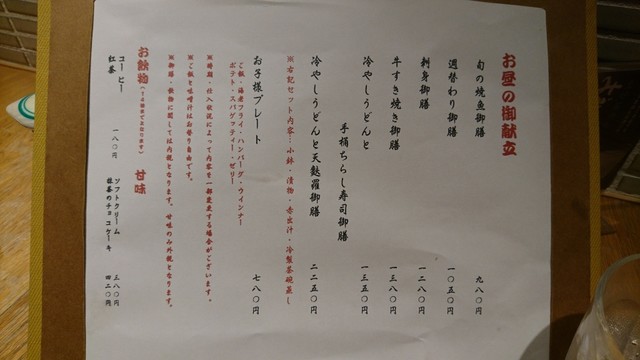 お昼の御献立
旬の焼魚御膳 九八〇円
週替わり御膳 一〇五〇円
刺身御膳 一二八〇円
牛すき焼き御膳 一三八〇円
冷やしうどんと
手桶ちらし寿司御膳 一三五〇円
冷やしうどんと天麩羅御膳 二二五〇円
※右記セット内容:小鉢・漬物・赤出汁・冷製茶碗蒸し
お子様プレート 七八〇円
ご飯・海老フライ・ハンバーグ・ウインナー
ポテト・スパゲッティー・ゼリー
※時期・仕入れ状況によって内容を一部変更する場合がございます。
※ご飯と味噌汁はお替り自由です。
※御膳・飲物に関しては内税となります。甘味のみ外税となります。
お飲物(14時までとなります)
コーヒー
紅茶 一八〇円
甘味
ソフトクリーム 三八〇円
抹茶のチョコケーキ 四二〇円